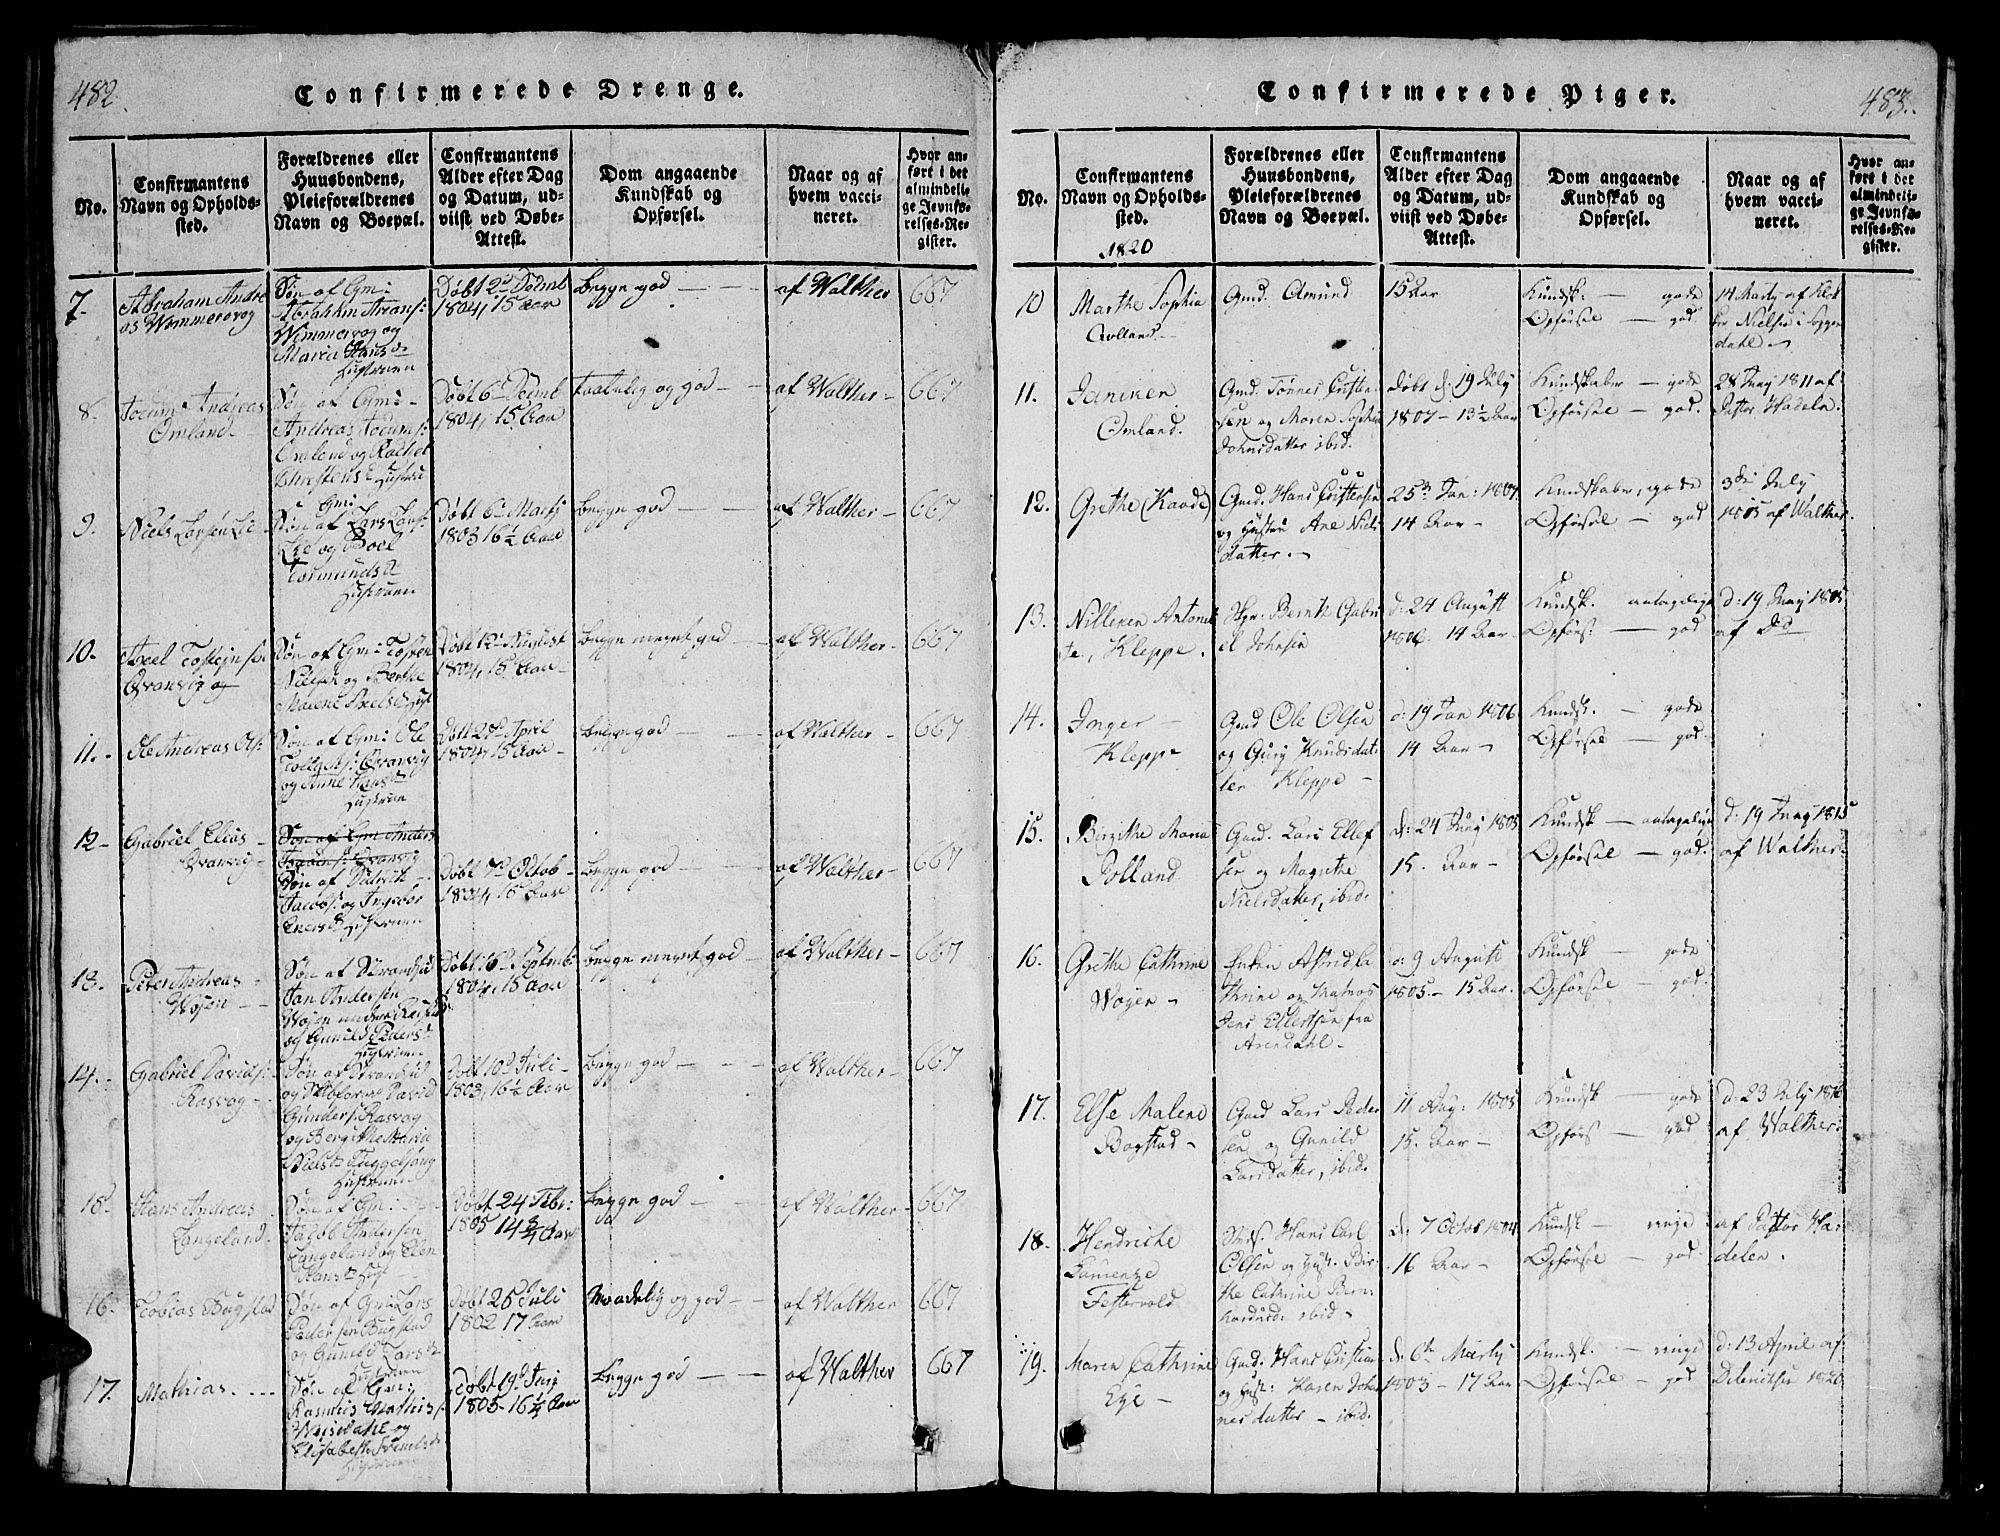 482.
Confirmerede Drenge.
No.
Confirmantens
Navn og Opholds-
sted.
Forældrenes eller
Huusbondens,
Pleieforældrenes
Navn og Boepæl.
Confirmantens
Alder efter Dag
og Datum, ud-
viist ved Døbe-
Attest.
Dom angaaende
Kundskab og
Opførsel.
Naar og af
hvem vacci-
neret.
Hvor an-
ført i det
almindeli-
ge Jevnfø-
relses-Re-
gister.
7.
Abraham Andre
as Wimmersvog
Søn af Gm:
Abrahm Arons:
Wimmersvog og
Maria Hans d.
Hustruen
Døbt 2d Decmb
1804, 15 Aar
begge god
af Walther
667
8.
Jocum Andreas
Omland
Søn af Gm:
Andreas Jocums:
Omland og Rachel
Christensd. Hustru
Døbt 6d Decmb
1804, 15 Aar
taalelig og god
af Walther
667
9.
Niels Larsen Lie
Gm:
Søn af Lars Lars:
Lie og Boel
Tormundsd
Hustruen
Døbt 6d Martj
1803 16½ Aar
begge god
af Walther
667
10.
Axel Tostejns:
Qvanvig
Søn af Gm: Tosten
Nielsen og Berthe
Malene Axelsd Hust
Døbt 12d August
1804, 15 Aar
begge meget god
af Walther
667
11.
Ole Andreas Ols:
Søn af Gm: Ole
Tollags: Qvanvig
og Anne Hansd.
Hustruen
Døbt 22d April
1804, 15 Aar
begge god
af Walther
667
12
Gabriel Elias
Qvanvig
Søn af Gm Anders
Isaachs: Qvanvig
Søn af Didrik
Jacobs: og Ingebor
Enersd Hustruen
Døbt 7d Octob
1804, 15 Aar
begge god
af Walther
667
13.
Peter Andreas
Wojen
Søn af Strandsid
Jan Andersen
Wojen under Reisud
og Gunild Peersd.
Hustruen
Døbt 16d Septemb:
1804, 15 Aar
begge meget god
af Walther
667
14.
Gabriel Davids:
Rasvog
Søn af Strandsid
og Skibfører David
Gunders: Rasvog
og Bergitthe Maria
Nielsd
Hustruen
Døbt 10d Juli
1803, 16½ Aar
begge god
af Walther
667
15.
Hans Andreas
Langeland
Søn af Gm:
Jacob Andersen
Langeland og Elen
Hansd. Hust
Døbt 24 Febr:
1805 14¾ Aar
begge god
af Walther
667
16.
Tobias Bugstad
Søn af Gm: Lars
Pedersen Bugstad
og Gunild Larsd.
Hustruen
Døbt 25 Juli
1802 17 Aar
Maadelig og god
af Walther
667
17.
Mathias
Søn af Gm:
Rasmus Mathis
og
Elisabeth
Hustruen
Døbt 19d Juni
1803 16¼ Aar
begge god
af Walther
667
Confirmerede Piger.
483.
No.
Confirmantens
Navn og Opholds-
sted.
1820
Forældrenes eller
Huusbondens,
Pleieforældrenes
Navn og Boepæl.
Confirmantens
Alder efter Dag
og Datum, ud-
viist ved Døbe-
Attest.
Dom angaaende
Kundskab og
Opførsel.
Naar og af
hvem vacci-
neret.
Hvor an-
ført i det
almindeli-
ge Jevnfø-
relses-Re-
gister.
10
Marthe Sophia
Aolland
Gmd. Amund
15 Aar
Kundsk. — gode
Opførsel — god
14 Marty af Klok
ker Nielsen i Soggen
dahl
11.
Janiken
Omland.
Gmd. Tønnes Christen
sen og Maren Sophia
Johnsdatter ibid.
Døbt d. 19 July
1807 - 13½ Aar
Kundskaber — gode
Opførsel — god
28 Juny 1811 af
Pastor Hadeln.
12.
Grethe (Kaade)
Gmd. Hans Cristensen
og Hustru Ane Niels
datter.
25d Jan: 1807
14 Aar
Kundskaber, gode
Opførsel — god
3die July
1805 af Walther
13.
Nilleken Antonet
te, Kleppe.
Skpr. Bernth Gabri
el Johnsen
d. 24 August
1806. 14 Aar
Kundsk. antagelige
Opførs: — god
d: 19 Juny 1805
af Do
14.
Inger
Kleppe
Gmd Ole Olsen
og Gury Knudsdat
ter Kleppe
d: 19 Jan 1806
14 Aar
Kundsk. — gode
Opførsel — god
15.
Birgithe Maria
Polland
Gmd. Lars Ellef
sen og Magrethe
Nielsdatter, ibid.
d: 24 Juny 1805
15. Aar
Kundsk — antagelige
Opførsel — god
d. 19 Juny 1815
af Walther
16.
Grethe Cathrine
Wøyen
Enken Astrid Ca
thrine og Matros
Jens Ellertsen fra
Arendahl
d: 9 August
1805 — 15 Aar
Kundsk — gode
Opførsel — god
17.
Else Malene
Bogstad
Gmd Lars Peder
sen og Gunild
Larsdatter, ibid.
11 Aug: 1805
15. Aar
Kundsk — gode
Opførs — god
d. 23 July 1816
af Walther
18.
Hendricke
Festervold
Inds: Hans Carl
Olsen og Hust. Bir
the Cathrine Bern
ibid
d: 7 Octob 1804
16 Aar
Kundsk — ringe
Opførsel — god
af Pastor Ha
delen.
19.
Maren Cathrine
Eye
Gmd: Hans Cristian
og Hust: Karen Johan
nesdatter — ibid.
d. 6te Marty
1803 — 17 Aar
Kundsk. — ringe
Opførsel — god
d: 13 April af
1820